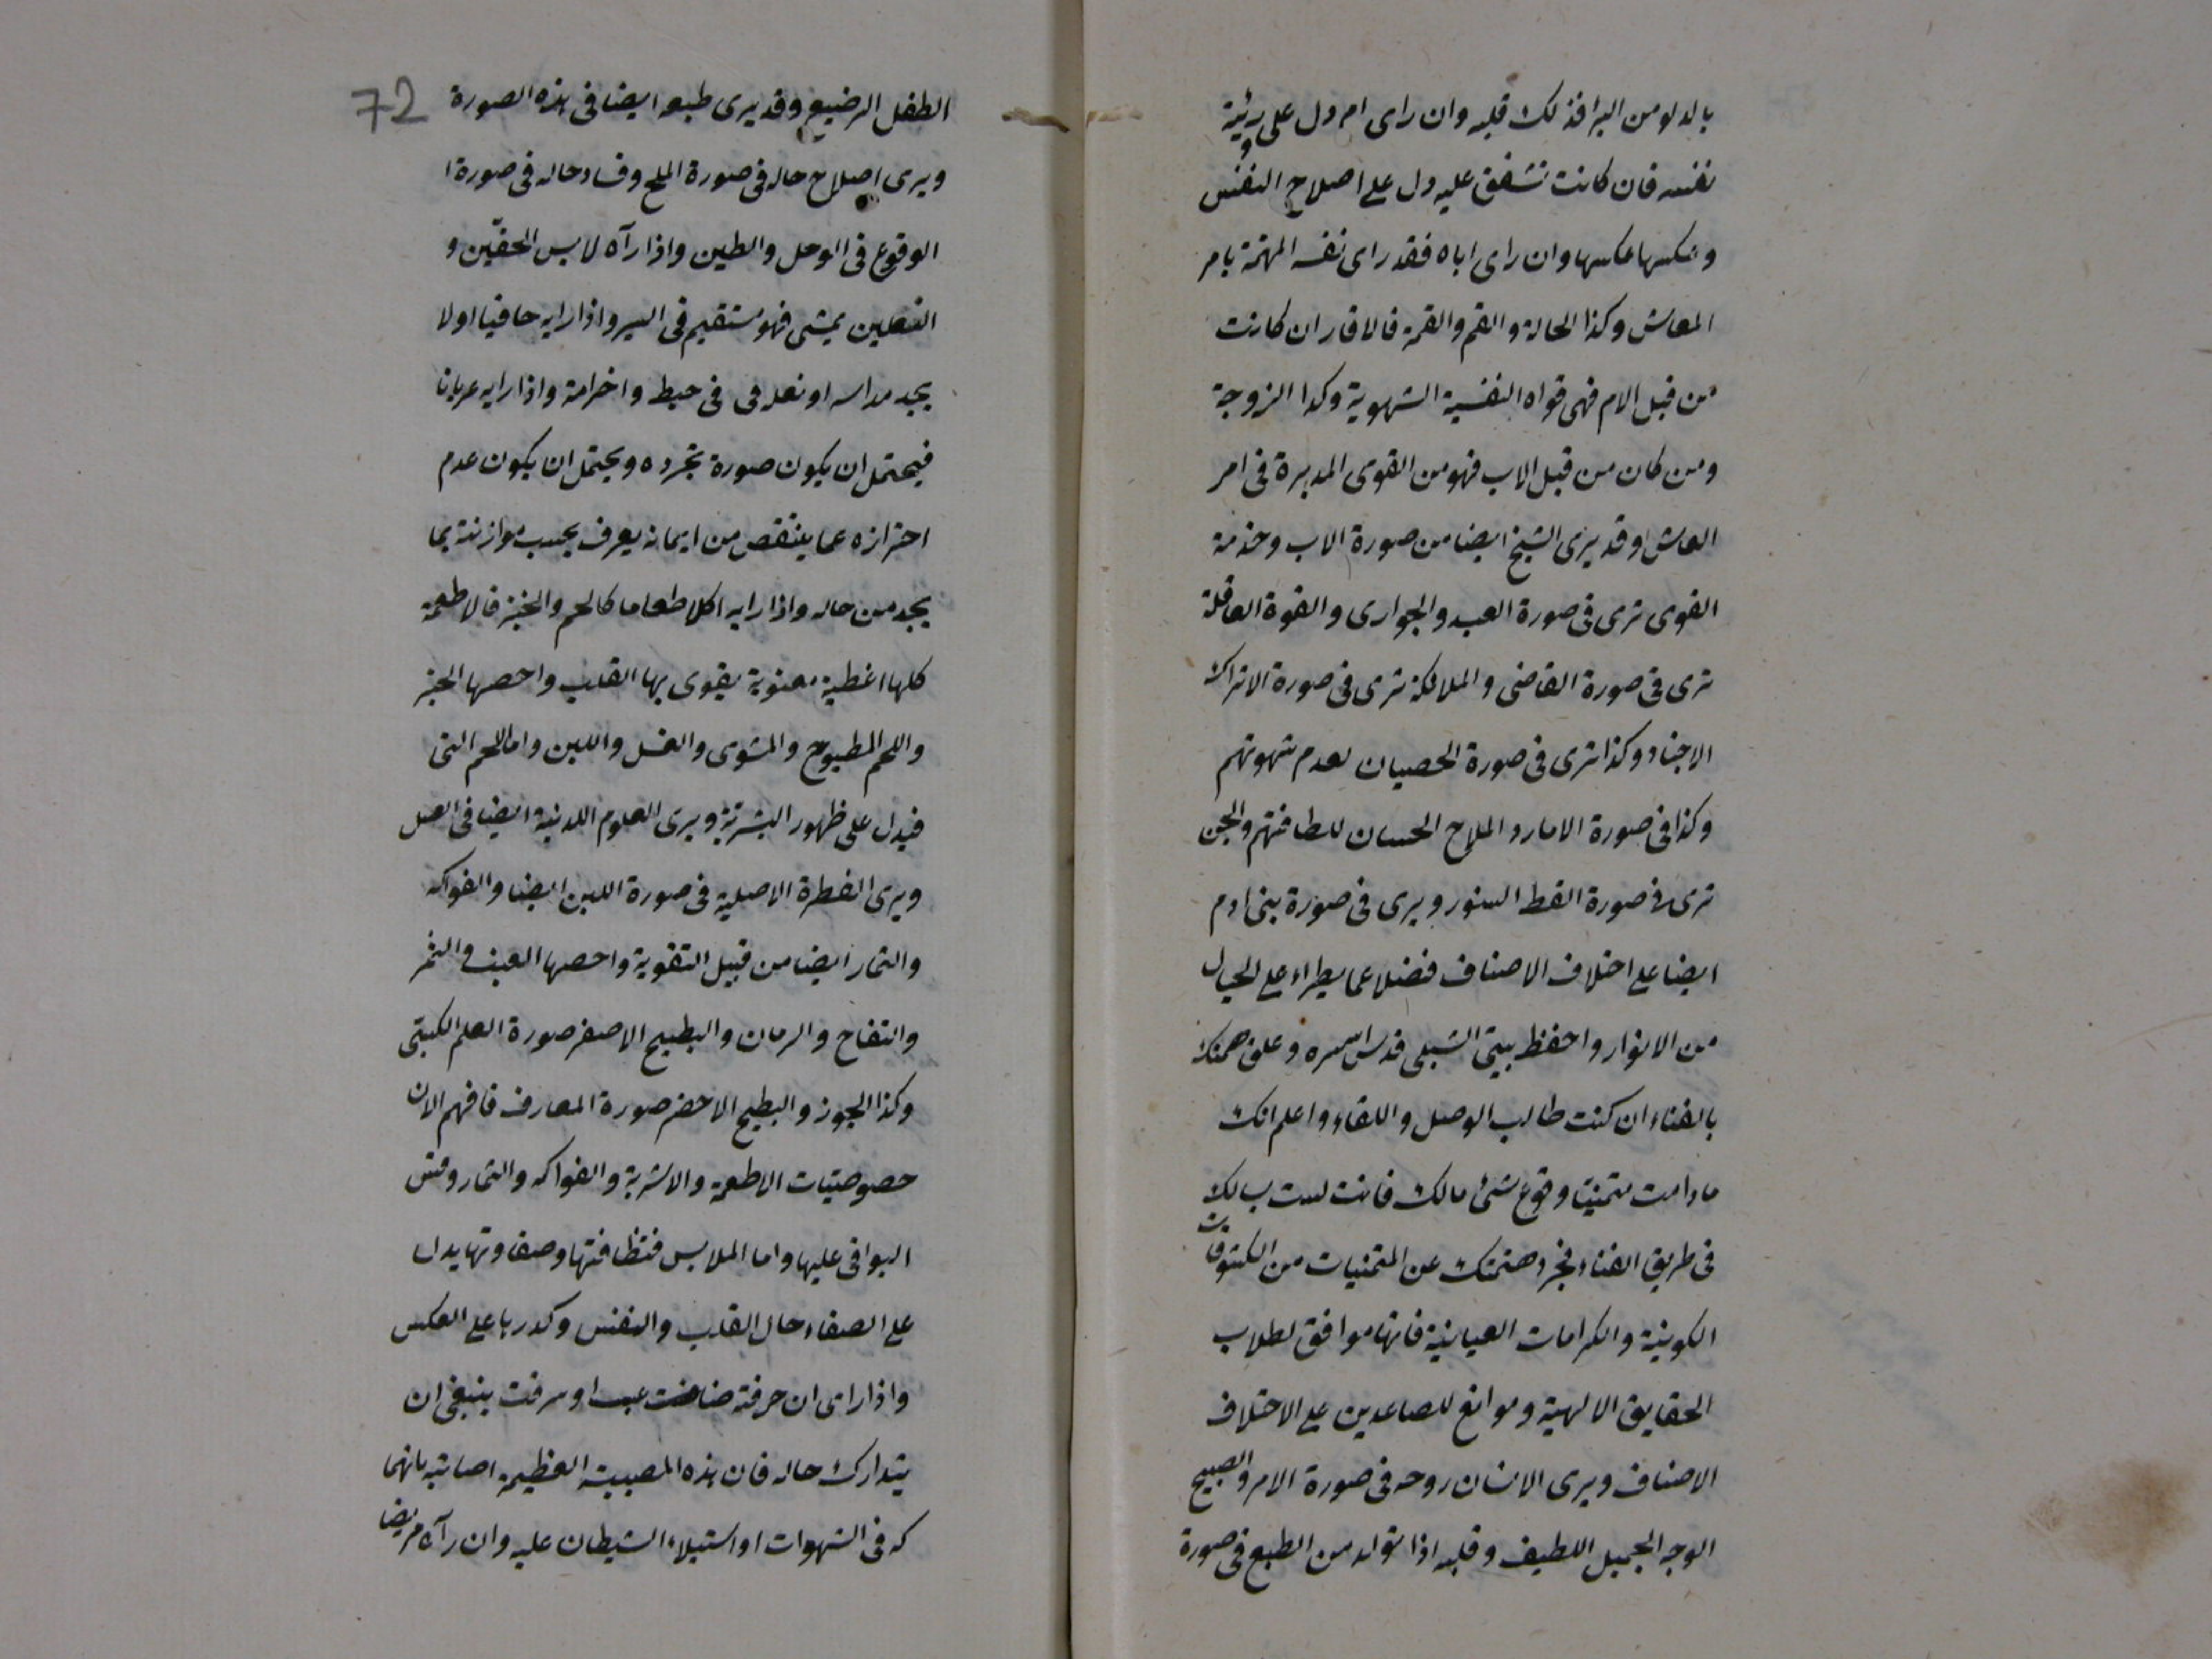 بالدلو من البرافذلك قلبه وان راى ام دل على رئية
نفسه فان كانت تشفق عليه دل على اصلاح النفس
وعكسها عكسها وان راى اباه فقد راى نفسه المهتمة بامر
المعاش وكذا الحالة والقم والقمة فالاقار ان كانت
من قبل الام فهى قواه النفسية الشهوية وكذا الزوجة
ومن كان من قبل الاب فهو من القوى المدبرة فى امر
العاش وقد يرى الشيخ ايضا من صورة الاب وخدمة
القوى ترى فى صورة العبد والجوارى والقوة العاقلة
ترى فى صورة القاضى والملائكة ترى فى صورة الاتراك
الاجناد وكذا ترى فى صورة الخصيان لعدم شهوتهم
وكذا فى صورة الامارد الملاح الحسان للطافتهم والجن
ترى فى صورة القط السنور ويرى فى صورة بنى ادم
ايضا على اختلاف الاصناف فضلا عما يطراء على الخيال
من الانوار واحفظ بيتى الشبلى قدس سره وعلق همتك
بالفناء ان كنت طالب الوصل واللقاء واعلم انك
مادامت متمنيا وقوع شئ مالك فانت لست بسالك
فى طريق الفناء فجرد همتك عن المتمنيات من الكشوفات
الكونية والكرامات العيانية فانها موافق لطلاب
الحقايق الالهية وموانع للصاعدين على الاختلاف
الاصناف ويرى الانسان روحه فى صورة الامرد الصبيح
الوجه الجميل اللطيف وقلبه اذا تولد من الطبع فى صورة
72
الطفل الرضيع وقد يرى طبعه ايضا فى هذه الصورة
ويرى اصلاح حاله فى صورة الملح وفساد حاله فى صورة ا
الوقوع فى الوحل والطين واذا رآه لابس الخفين و
النعلين يمشى فهو مستقيم فى السير واذا رايه حافيا اولا
يجد مداسه او نعله فى حبط واخرامة واذا رايه عريانا
فيحتمل ان يكون صورة تجرده ويحتمل ان يكون عدم
احترازه عما ينتقص من ايمانه يعرف بحسب موازنته بما
يجد من حاله واذا رايه اكلا طعاما كالحم والخبز فالاطعمة
كلها اغطية معنوية يقوى بها القلب واخصها الخبز
واللحم المطبوح والمشوى والعسل واللبن واما اللحم النى
فيدل على ظهور البشرية ويرى العلوم اللدنية ايضا فى العسل
ويرى الفطرة الاصلية فى صورة اللبن ايضا والفواكه
والثمار ايضا من قبيل التقوية واخصها العنب والتمر
والتفاح والرمان والبطيح الاصفر صورة العلم الكسبى
وكذا الجوز والبطيح الاخضر صورة المعارف فافهم الان
خصوصيات الاطعمة والاشربة والفواكه والثمار وقس
البواقى عليها واما الملابس فنظافتها وصفاوتها يدل
على الصفاء حال القلب والنفس وكدرها على العكس
واذا راى ان خرقته ضاعت عبسا او سرقت ينبغى ان
يتدارك حاله فان هذه المصيبة العظيمة اصابته بانهما
كه فى الشهوات او استيلاء الشيطان عليه وان رآه مريضا